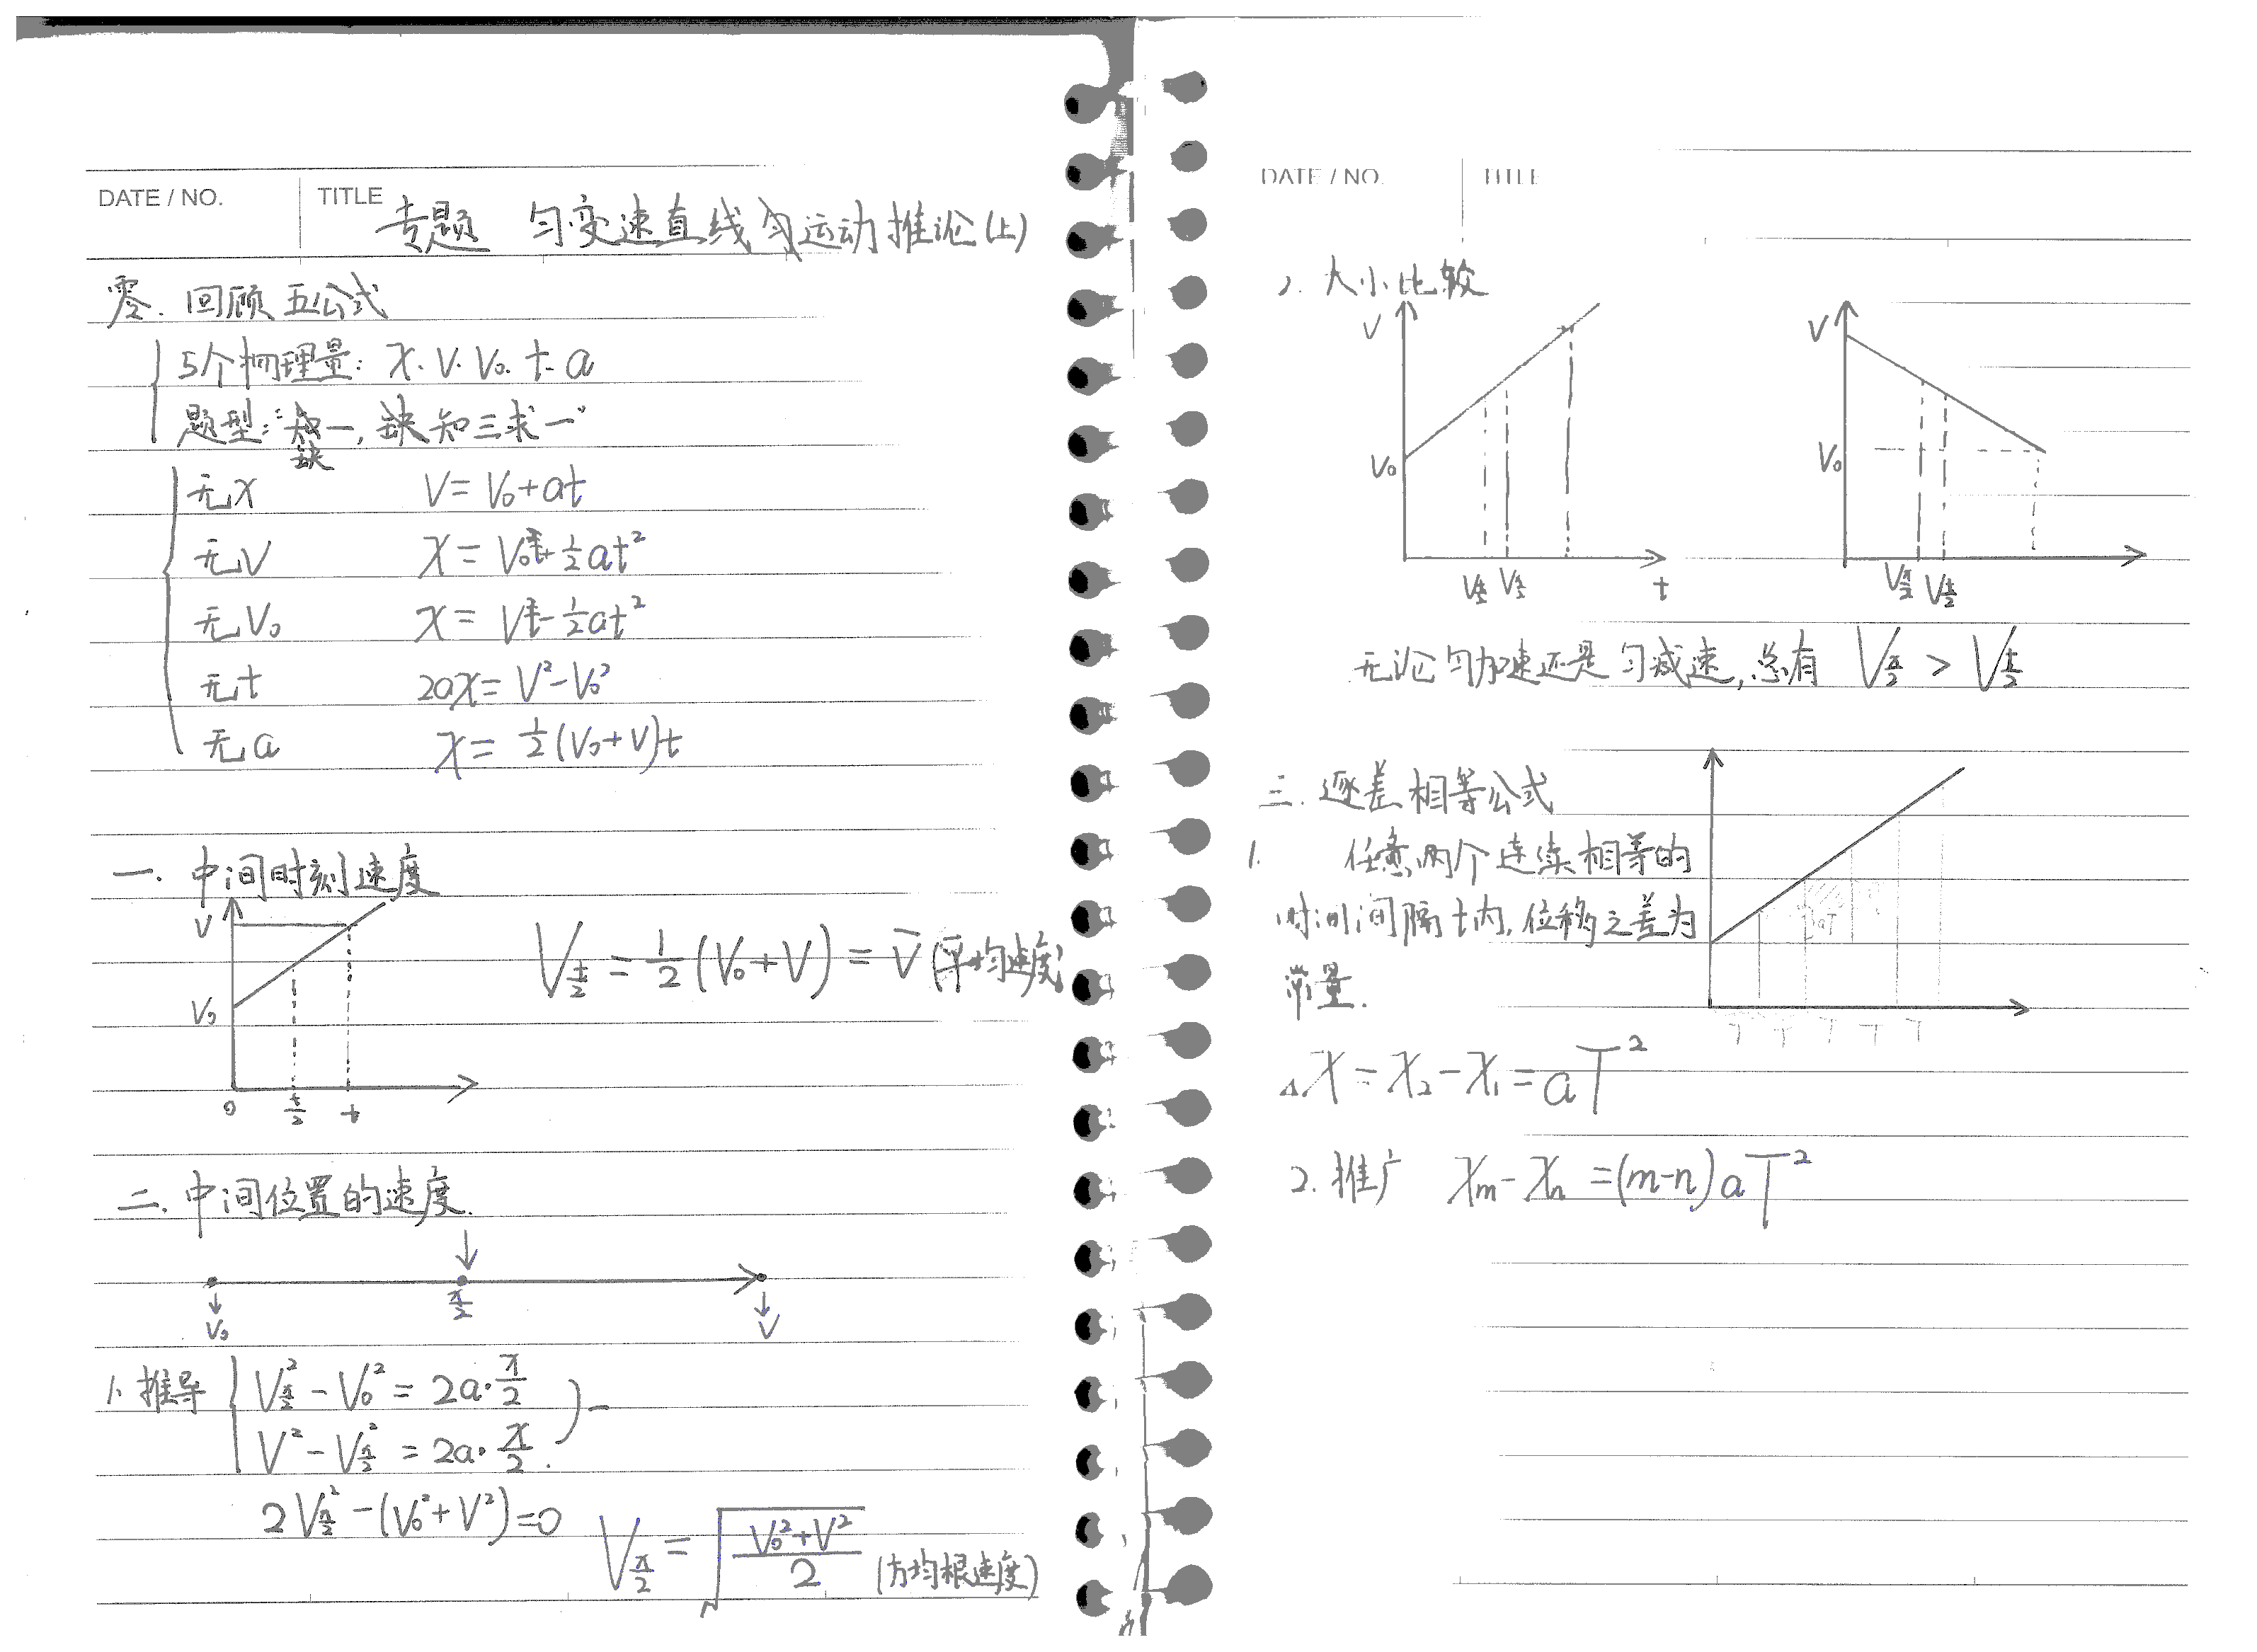 DATE / NO.
TITLE
专题 匀变速直线匀运动推论(上)
零. 回顾五公式
5个物理量: x. V. V₀. t. a
题型:“知一, 缺知三求一”
缺
无x V = V₀ + at
无V x = V₀t + ½at²
无V₀ x = Vt - ½at²
无t 2ax = V² - V₀²
无a x = ½(V₀+V)t
一. 中间时刻速度
V
V₀
0 t/2 t
V_{t/2} = ½(V₀+V) = V̄ (平均速度)
二. 中间位置的速度.
x/2
V₀ V
1. 推导 V_{x/2}² - V₀² = 2a·x/2
V² - V_{x/2}² = 2a·x/2.
2V_{x/2}² - (V₀²+V²) = 0
V_{x/2} = √((V₀²+V²)/2) (方均根速度)
DATE / NO.
TITLE
2. 大小比较
V
V₀
V_{t/2} V_{x/2} t
V
V₀
V_{x/2} V_{t/2}
无论匀加速还是匀减速, 总有 V_{x/2} > V_{t/2}
三. 逐差相等公式
1. 任意两个连续相等的
时间间隔t内, 位移之差为
常量.
aT
T T T T T
△x = x₂ - x₁ = aT²
2. 推广 x_m - x_n = (m-n)aT²